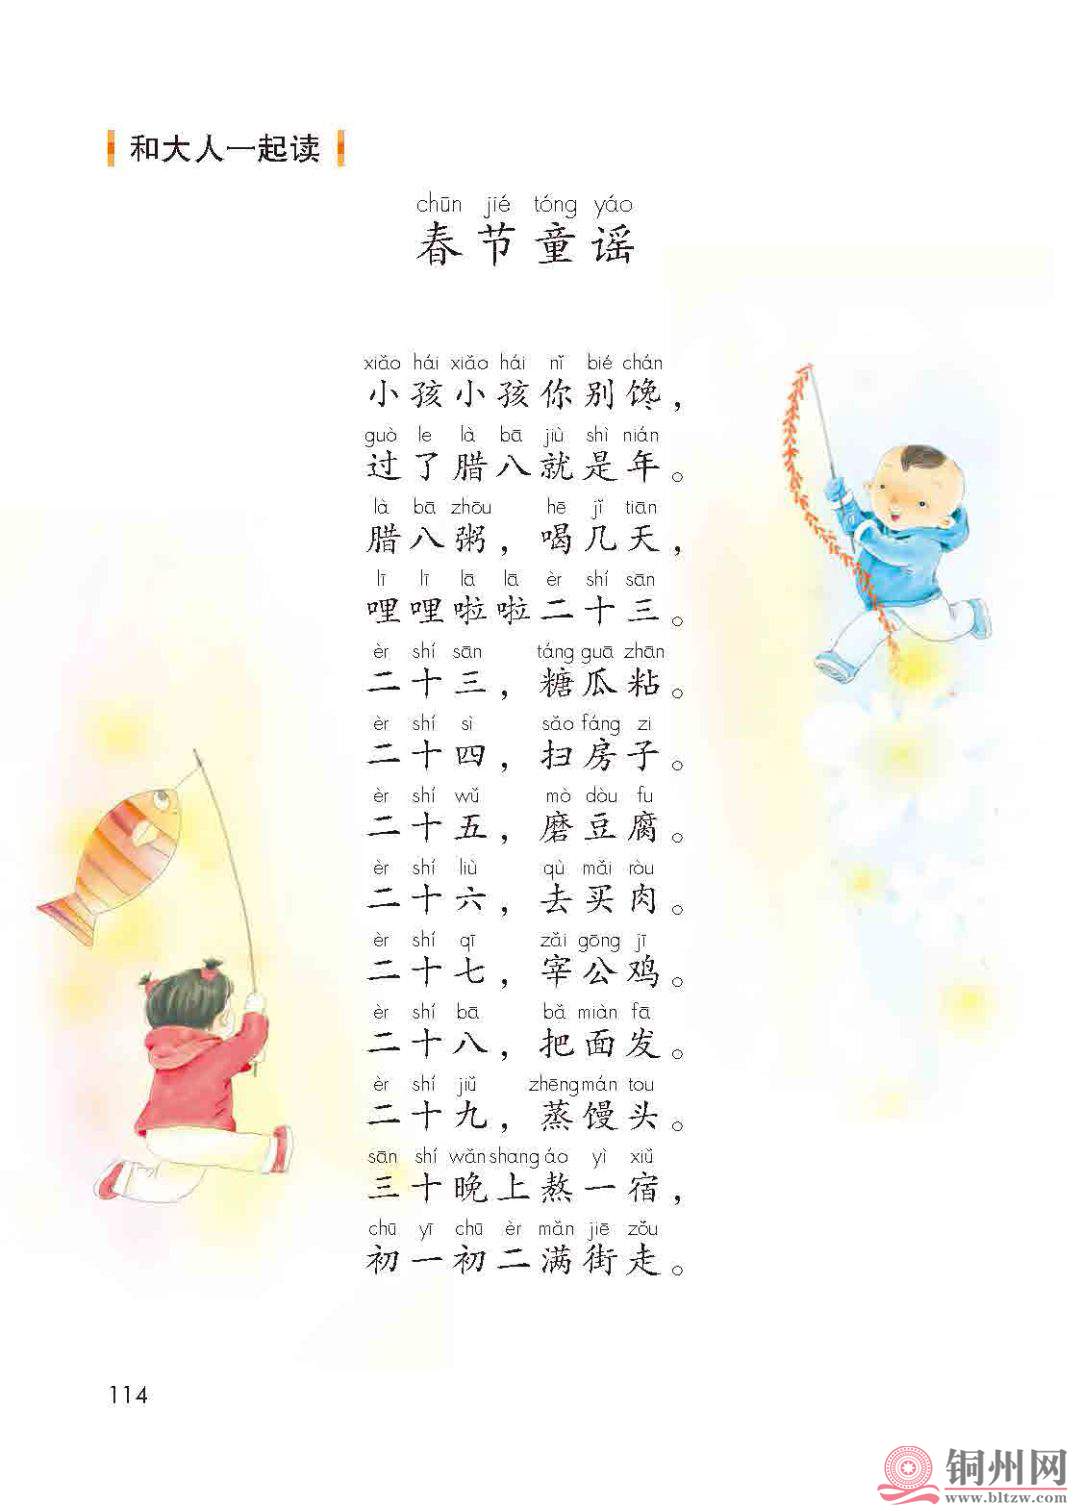 和大人一起读
chūn jié tóng yáo
春节童谣
xiǎo hái xiǎo hái nǐ bié chán
小孩小孩你别馋，
guò le là bā jiù shì nián
过了腊八就是年。
là bā zhōu hē jǐ tiān
腊八粥，喝几天，
lī lī lā lā èr shí sān
哩哩啦啦二十三。
èr shí sān táng guā zhān
二十三，糖瓜粘。
èr shí sì sǎo fáng zi
二十四，扫房子。
èr shí wǔ mò dòu fu
二十五，磨豆腐。
èr shí liù qù mǎi ròu
二十六，去买肉。
èr shí qī zǎi gōng jī
二十七，宰公鸡。
èr shí bā bǎ miàn fā
二十八，把面发。
èr shí jiǔ zhēng mán tou
二十九，蒸馒头。
sān shí wǎn shang áo yì xiǔ
三十晚上熬一宿，
chū yī chū èr mǎn jiē zǒu
初一初二满街走。
114
铜州网
www.bltzw.com